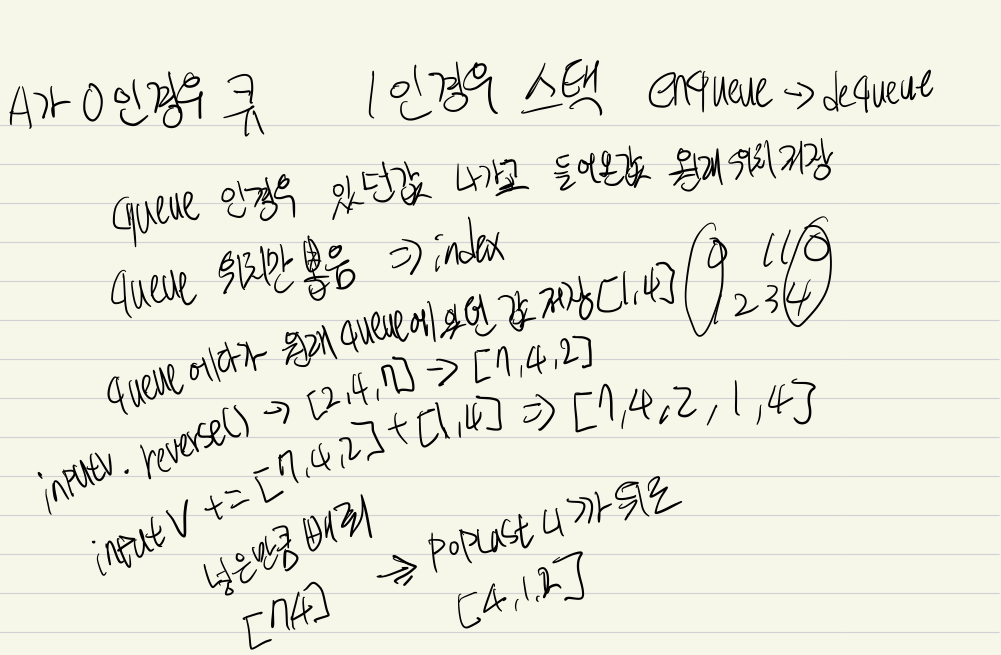 A가 0인경우 큐 1인경우 스택 enqueue → dequeue
queue 인경우 있던값 나가고 들어온값 원래위치 저장
queue 위치만 뽑음 ⇒ index
0 110
1 234
queue에다가 원래 queue에 있던 값 저장 [1,4]
inputv.reverse() → [2,4,7] → [7,4,2]
inputV += [7,4,2] + [1,4] ⇒ [7,4,2,1,4]
넣은만큼 빼기
[7,4]
⇒ popLast 니까 뒤로
[4,1,2]